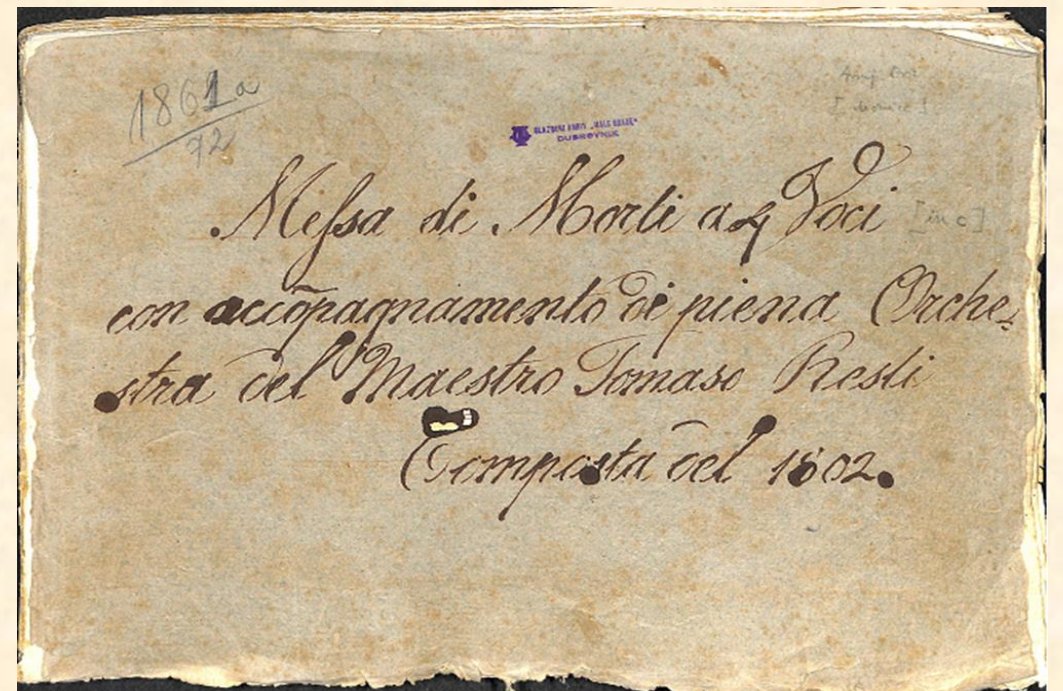 1861a
72
GLAZBENI ARHIV „MALA BRAĆA“
DUBROVNIK
Messa di Morti a 4 Voci
[in c]
con accõpagnamento di piena Orche=
stra del Maestro Tomaso Resti
Composta del 1802.